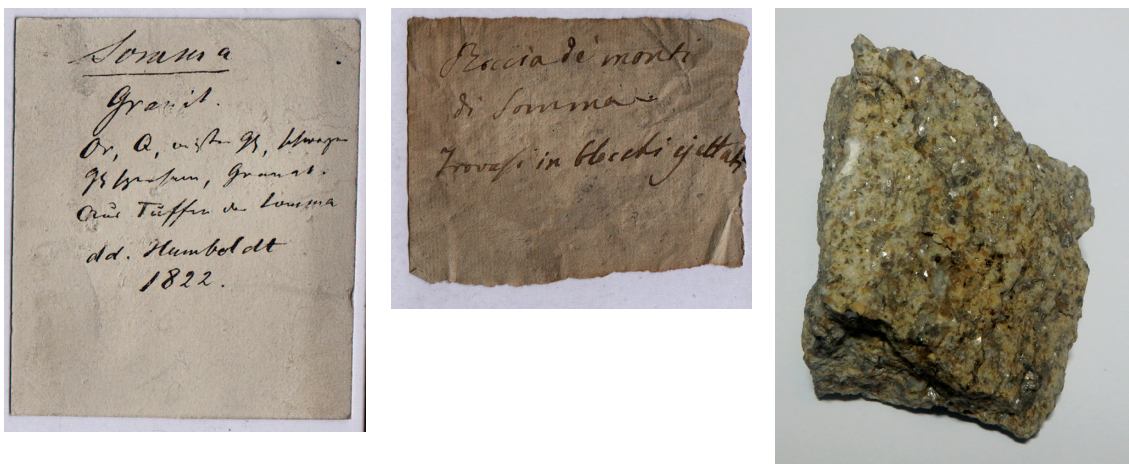 Somma
Granit.
Or, Q, weißer Gl, schwarzer
Gl, Granat.
Aus Tuffen der Somma
dd. Humboldt
1822.
Roccia de monti
di Somma
Trovasi in blocchi ejettati